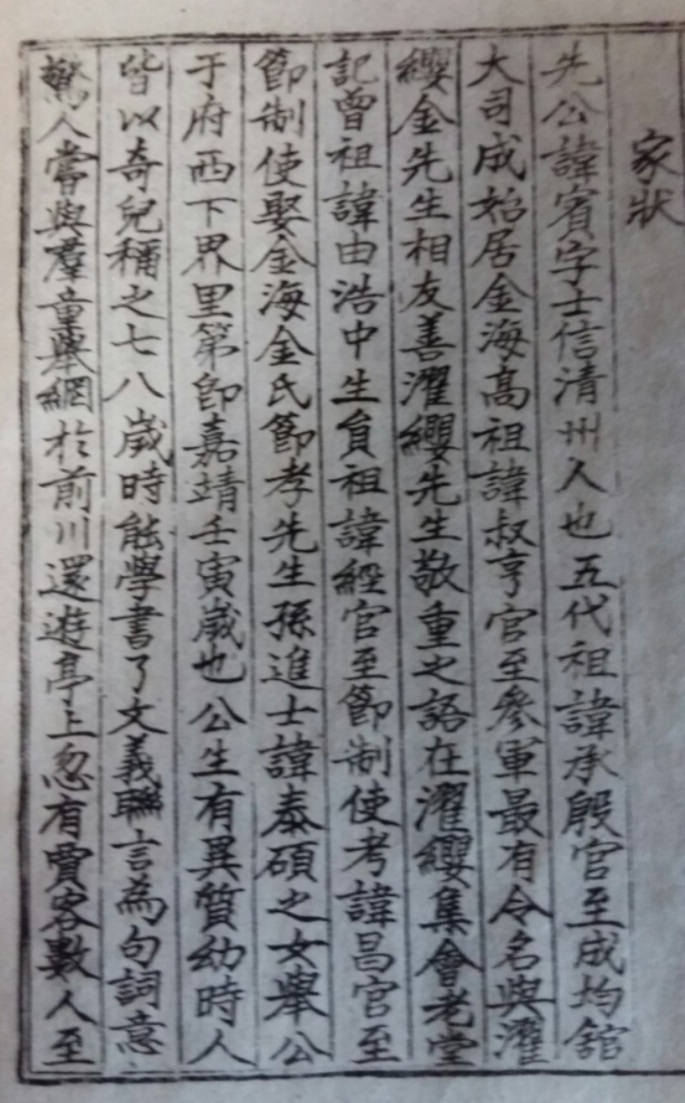 家狀
先公諱賓字士信清州人也五代祖諱承殷官至成均舘
大司成始居金海高祖諱叔亨官至參軍最有令名與濯
纓金先生相友善濯纓先生敬重之語在濯纓集會老堂
記曾祖諱由浩中生員祖諱經官至節制使考諱昌官至
節制使娶金海金氏節孝先生孫進士諱泰碩之女擧公
于府西下界里第卽嘉靖壬寅歲也公生有異質幼時人
皆以奇兒稱之七八歲時能學書了文義聯言為句詞意
驚人嘗與羣童擧網於前川還遊亭上忽有賣客數人至